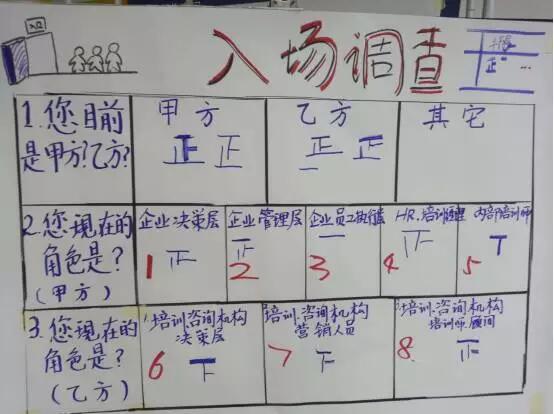 入口
入场调查
正
1.您目前
是甲方?乙方?
甲方
正 正
乙方
正 正
一
其它
2.您现在的
角色是?
(甲方)
企业决策层
1 正
企业管理层
正
2
企业员工执行层
一
3
HR.培训经理
4 正
内部培训师
5 T
3.您现在的
角色是?
(乙方)
培训.咨询机构
决策层
6 下
培训.咨询机构
营销人员
7 下
培训.咨询机构
培训师.顾问
8. 正